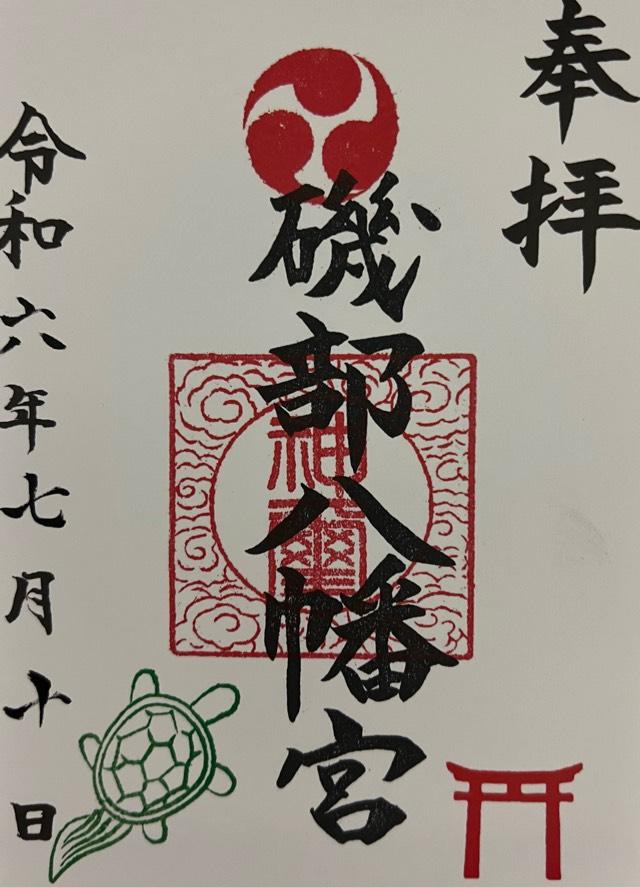 奉拝
磯部八幡宮
神璽
令和六年七月十日